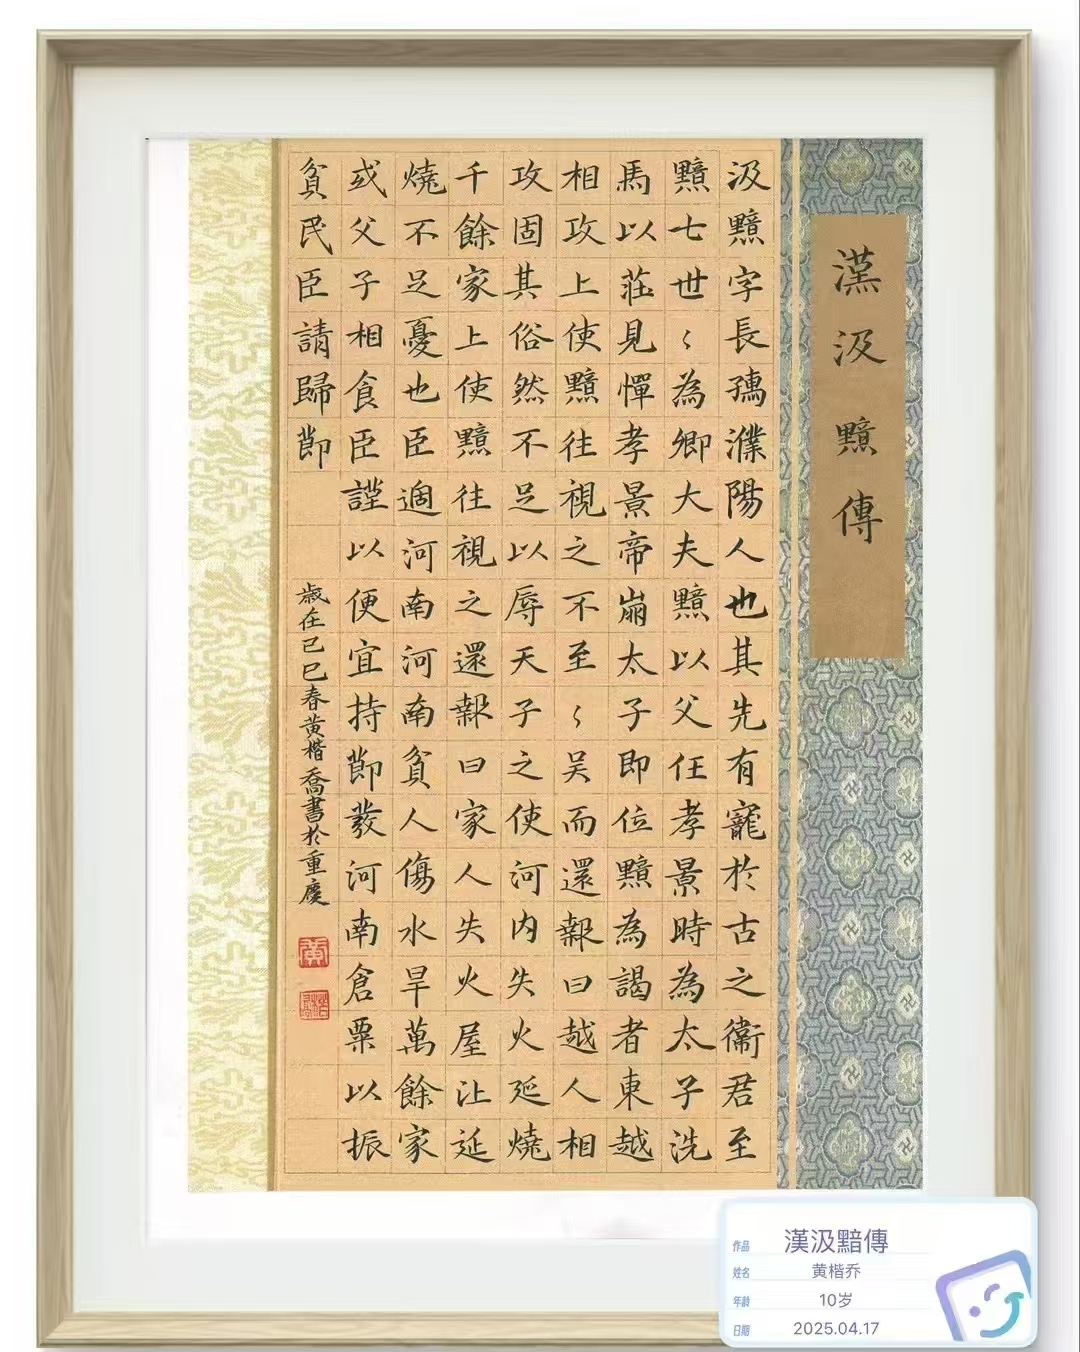 漢汲黯傳
汲黯字長孺濮陽人也其先有寵於古之衛君至
黯七世〻為卿大夫黯以父任孝景時為太子洗
馬以莊見憚孝景帝崩太子即位黯為謁者東越
相攻上使黯往視之不至〻吳而還報曰越人相
攻固其俗然不足以辱天子之使河内失火延燒
千餘家上使黯往視之還報曰家人失火屋比延
燒不足憂也臣過河南河南貧人傷水旱萬餘家
或父子相食臣謹以便宜持節發河南倉粟以振
貧民臣請歸節
歲在己巳春黄楷喬書於重慶
黄
作品 漢汲黯傳
姓名 黄楷乔
年龄 10岁
日期 2025.04.17